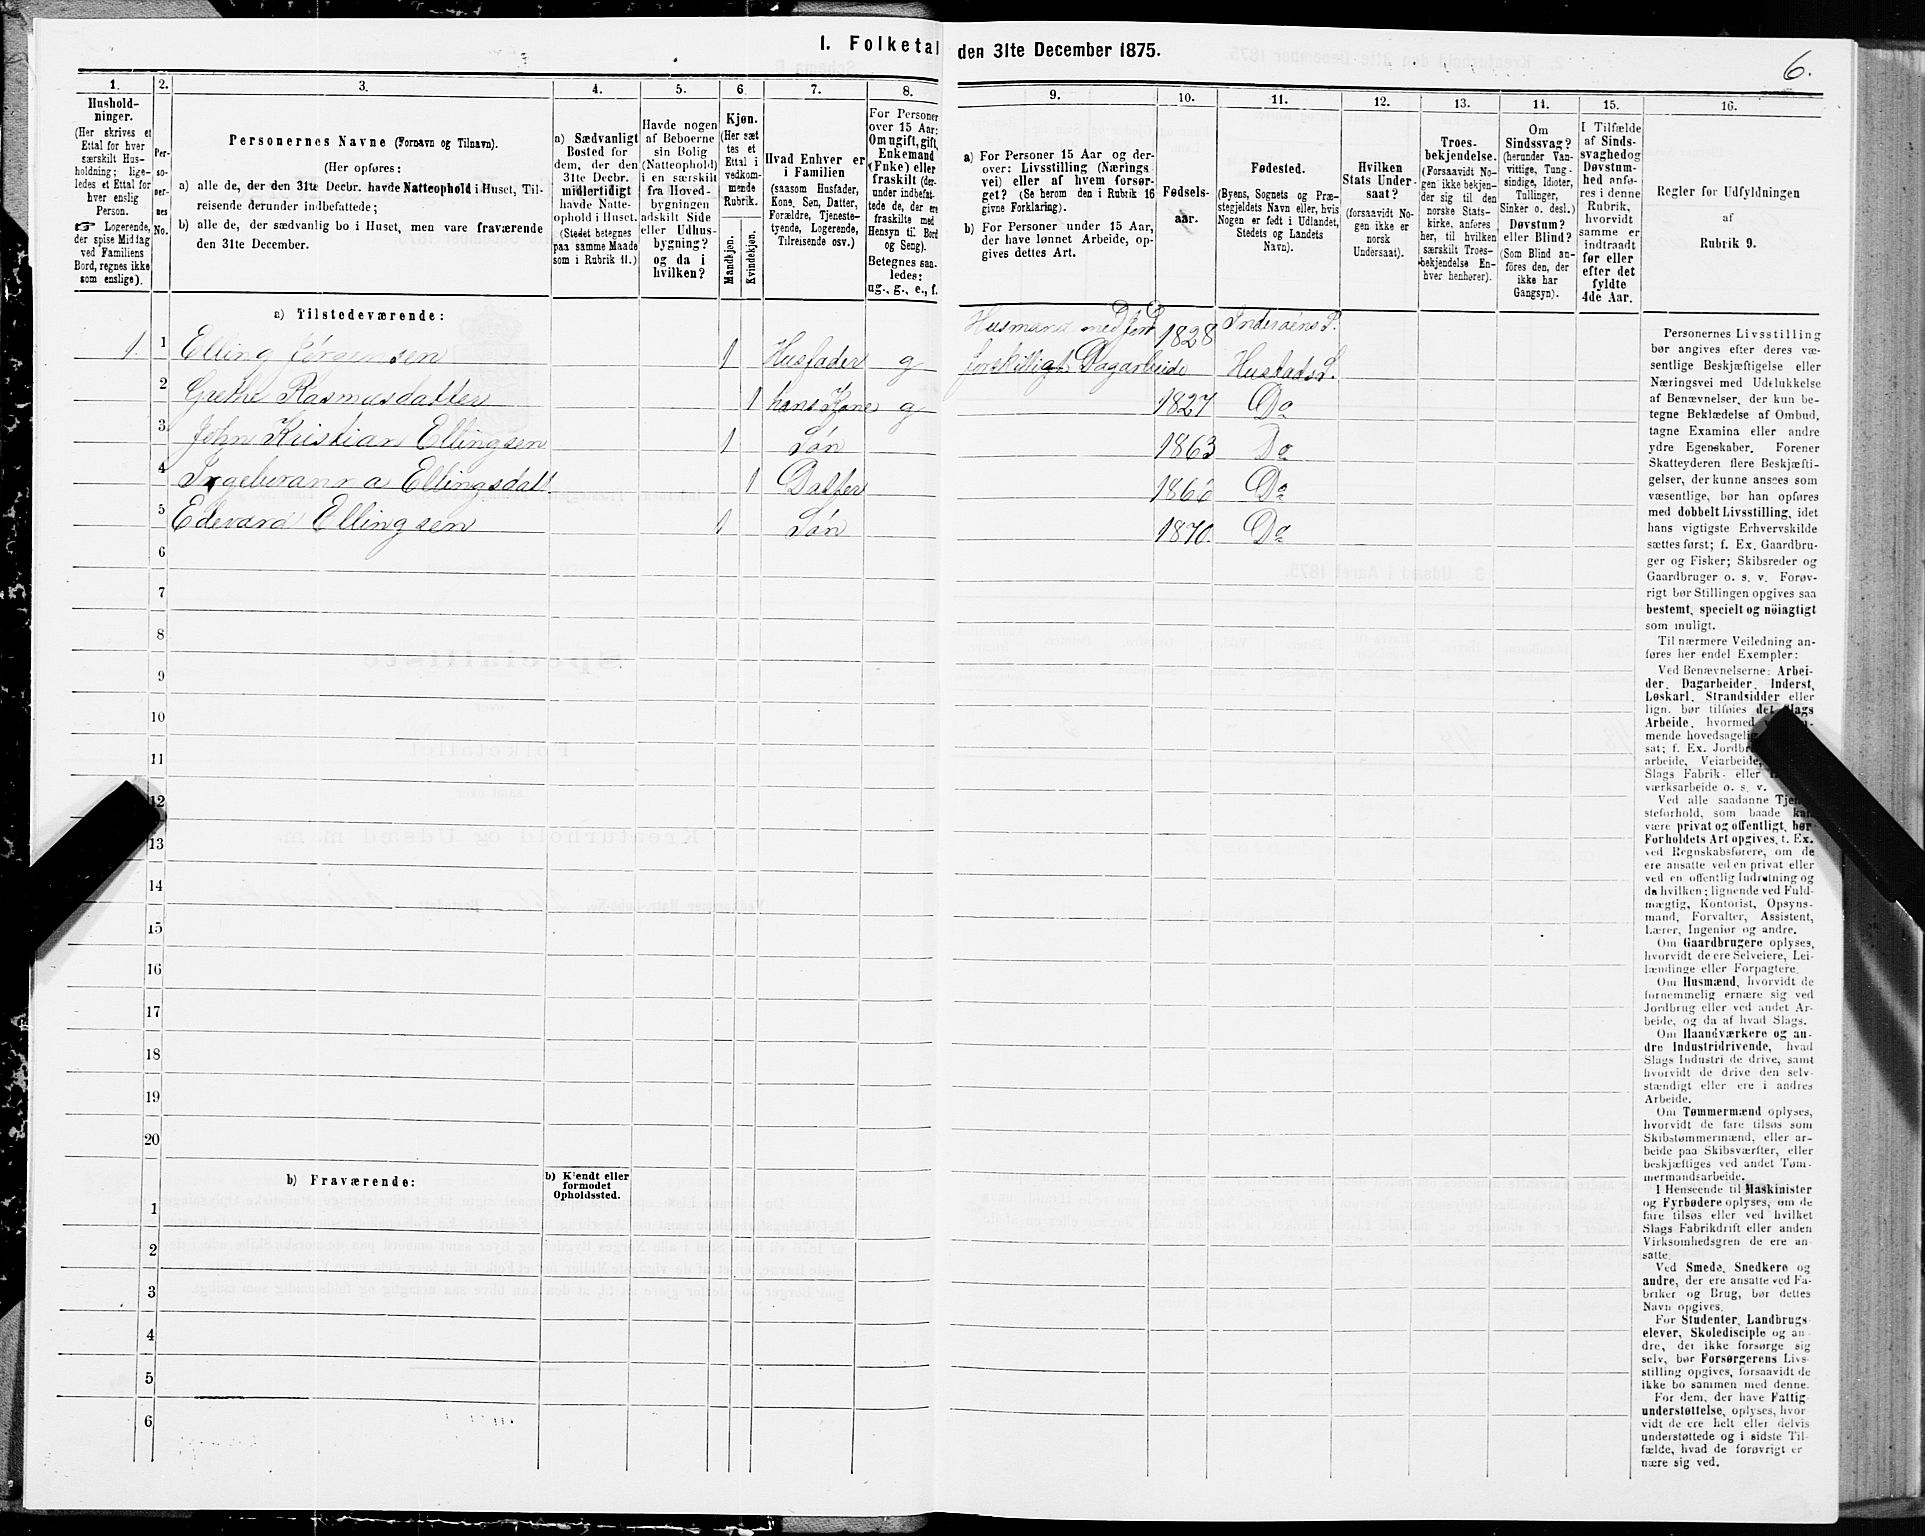 I. Folketal den 31te December 1875.
6.
1.
Hushold-
ninger.
(Her skrives et
Ettal for hver
særskilt Hus-
holdning; lige-
ledes et Ettal for
hver enslig
Person.
☞ Logerende,
der spise Middag
ved Familiens
Bord, regnes ikke
som enslige).
2.
Per-
so-
ner-
nes
No.
3.
Personernes Navne (Fornavn og Tilnavn).
(Her opføres:
a) alle de, der den 31te Decbr. havde Natteophold i Huset, Til-
reisende derunder indbefattede;
b) alle de, der sædvanlig bo i Huset, men vare fraværende
den 31te December.
4.
a) Sædvanligt
Bosted for
dem, der den
31te Decbr.
midlertidigt
havde Natte-
ophold i Huset.
(Stedet betegnes
paa samme Maade
som i Rubrik 11.)
5.
Havde nogen
af Beboerne
sin Bolig
(Natteophold)
i en særskilt
fra Hoved-
bygningen
adskilt Side
eller Udhus-
bygning?
og da i
hvilken?
6.
Kjøn.
(Her sæt
tes et
Ettal i
vedkom-
mende
Rubrik.
Mandkjøn.
Kvindekjøn.
7.
Hvad Enhver er
i Familien
(saasom Husfader,
Kone, Søn, Datter,
Forældre, Tjeneste-
tyende, Logerende,
Tilreisende osv.)
8.
For Personer
over 15 Aar:
Om ugift, gift,
Enkemand
(Enke) eller
fraskilt (der-
under indbefat-
tede de, der ere
fraskilte med
Hensyn til Bord
og Seng).
Betegnes saa-
ledes:
ug., g., e., f.
9.
a) For Personer 15 Aar og der-
over: Livsstilling (Nærings
vei) eller af hvem forsør-
get? (Se herom den i Rubrik 16
givne Forklaring).
b) For Personer under 15 Aar,
der have lønnet Arbeide, op-
gives dettes Art.
10.
Fødsels-
aar.
11.
Fødested.
(Byens, Sognets og Præ-
stegjeldets Navn eller, hvis
Nogen er født i Udlandet,
Stedets og Landets
Navn).
12.
Hvilken
Stats Under-
saat?
(forsaavidt No-
gen ikke er
norsk
Undersaat).
13.
Troes-
bekjendelse.
(Forsaavidt No-
gen ikke bekjen-
der sig til den
norske Stats-
kirke, anføres
her, til hvilken
særskilt Troes-
bekjendelse En-
hver henhører).
14.
Om
Sindssvag?
(herunder Van-
vittige, Tung-
sindige, Idioter,
Tullinger,
Sinker o. desl.)
Døvstum?
eller Blind?
(Som Blind an-
føres den, der
ikke har
Gangsyn).
15.
I Tilfælde
af Sinds-
svaghed og
Døvstum-
hed anfø-
res i denne
Rubrik,
hvorvidt
samme er
indtraadt
før eller
efter det
fyldte
4de Aar.
16.
Regler for Udfyldningen
af
Rubrik 9.
a) Tilstedeværende:
Husmand med Jord 1828 Inderøens P.
1. 1 Elling Jørgensen 1 Husfader g forskilligt Dagarbeide Hustads S.
2 Grethe Rasmusdatter 1 hans Kone g 1827 Do
3 John Kristian Ellingsen 1 Søn 1863 Do
4 Ellingsdatt 1 Datter 1866 Do
5 Edevard Ellingsen 1 Søn 1870. Do
6
7
8
9
10
11
12
13
14
15
16
17
18
19
20
b) Fraværende:
b) Kjendt eller
formodet
Opholdssted.
1
2
3
4
5
6
Personernes Livsstilling
bør angives efter deres væ-
sentlige Beskjæftigelse eller
Næringsvei med Udelukkelse
af Benævnelser, der kun be-
tegne Beklædelse af Ombud,
tagne Examina eller andre
ydre Egenskaber. Forener
Skatteyderen flere Beskjæfti-
gelser, der kunne ansees som
væsentlige, bør han opføres
med dobbelt Livsstilling, idet
hans vigtigste Erhvervskilde
sættes først; f. Ex. Gaardbru-
ger og Fisker; Skibsreder og
Gaardbruger o. s. v. Forøv-
rigt bør Stillingen opgives saa
bestemt, specielt og nöiagtigt
som muligt.
Til nærmere Veiledning an-
føres her endel Exempler:
Ved Benævnelserne: Arbei-
der, Dagarbeider, Inderst,
Løskarl, Strandsidder eller
lign. bør tilføies det Slags
Arbeide, hvormed
mende hovedsagelig
sat; f. Ex. Jordbr
arbeide, Veiarbeide,
Slags Fabrik- eller
værksarbeide o. s. v.
Ved alle saadanne Tjen
steforhold, som baade kan
være privat og offentligt, bør
Forholdets Art opgives, t. Ex.
ved Regnskabsførere, om de
ere ansatte ved en privat eller
ved en offentlig Indretning og
da hvilken; lignende ved Fuld-
mægtig, Kontorist, Opsyns-
mand, Forvalter, Assistent,
Lærer, Ingeniør og andre.
Om Gaardbrugere oplyses,
hvorvidt de ere Selveiere, Lei-
lændinge eller Forpagtere.
Om Husmænd, hvorvidt de
fornemmelig ernære sig ved
Jordbrug eller ved andet Ar-
beide, og da af hvad Slags.
Om Haandværkere og an-
dre Industridrivende, hvad
Slags Industri de drive, samt
hvorvidt de drive den selv-
stændigt eller ere i andres
Arbeide.
Om Tømmermænd oplyses,
hvorvidt de fare tilsøs som
Skibstømmermænd, eller ar-
beide paa Skibsværfter, eller
beskjæftiges ved andet Tøm-
mermandsarbeide.
I Henseende til Maskinister
og Fyrbødere oplyses, om de
fare tilsøs eller ved hvilket
Slags Fabrikdrift eller anden
Virksomhedsgren de ere an-
satte.
Ved Smede, Snedkere og
andre, der ere ansatte ved Fa-
briker og Brug, bør dettes
Navn opgives.
For Studenter, Landbrugs-
elever, Skoledisciple og an-
dre, der ikke forsørge sig
selv, bør Forsørgerens Livs-
stilling opgives, forsaavidt de
ikke bo sammen med denne.
For dem, der have Fattig-
understøttelse, oplyses, hvor-
vidt de ere helt eller delvis
understøttede og i sidste Til-
fælde, hvad de forøvrigt er
nære sig ved.